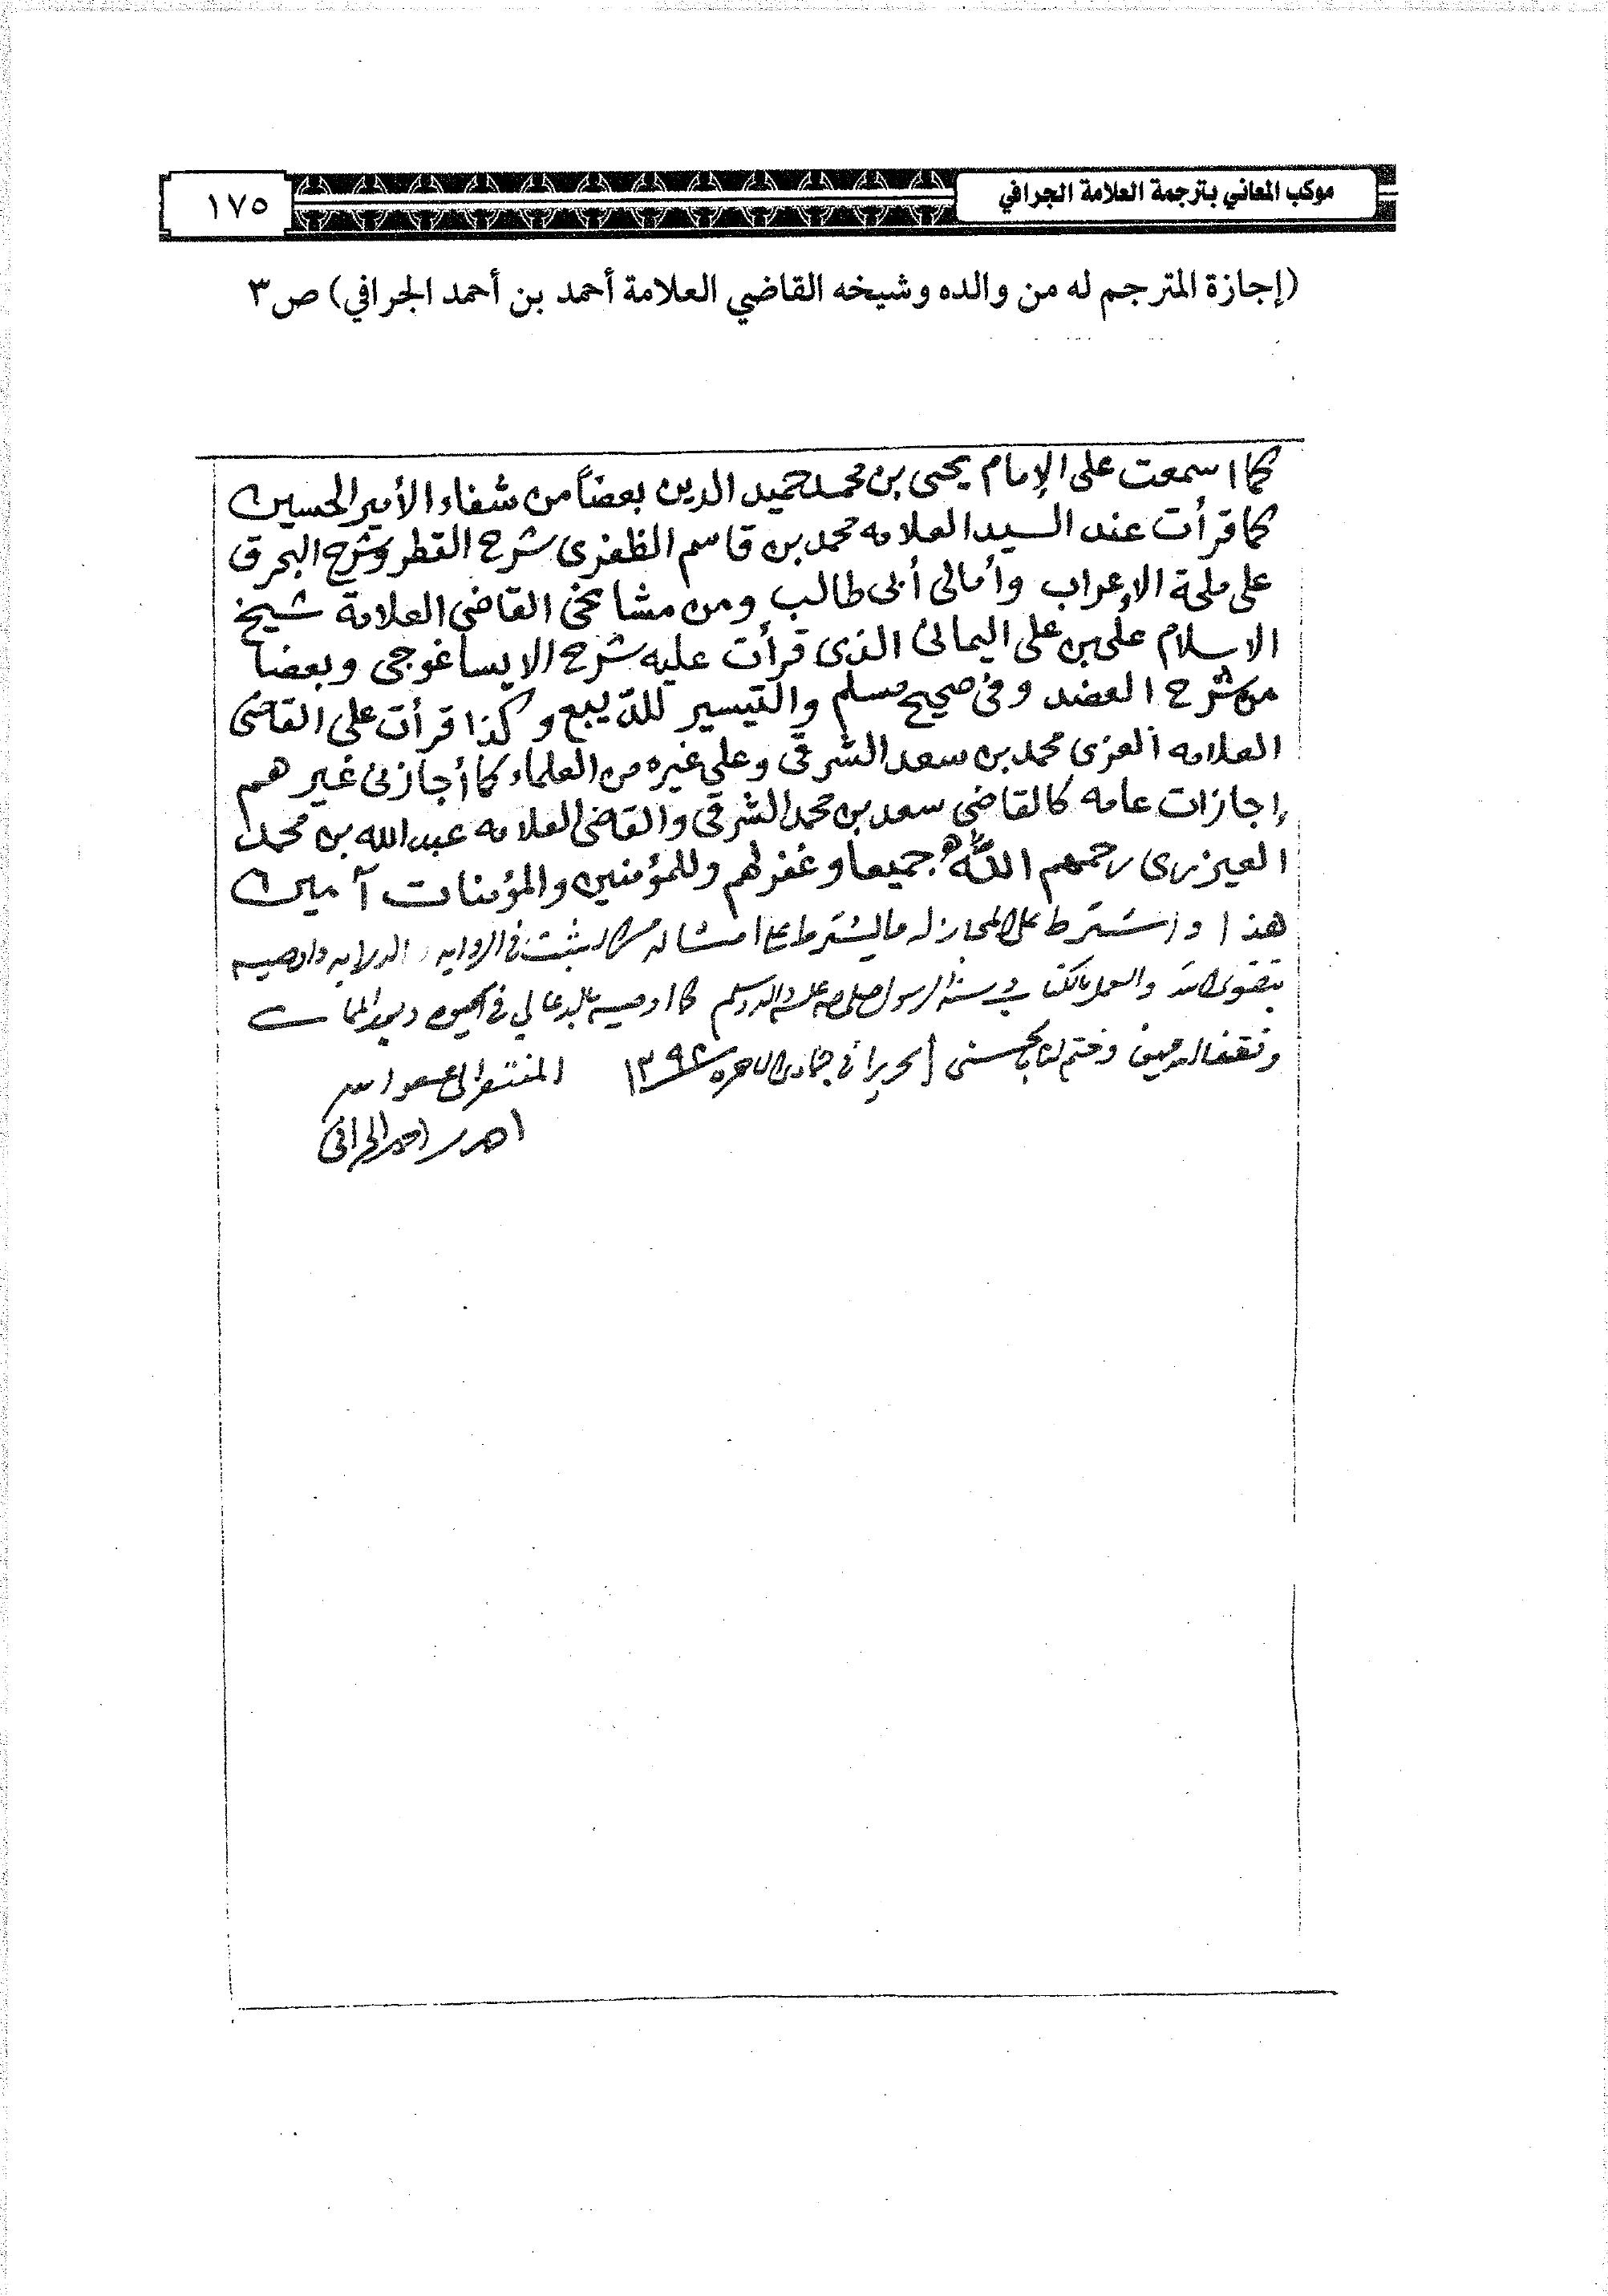 موكب المعاني بترجمة العلامة الجرافي
١٧٥
(إجازة المترجم له من والده وشيخه القاضي العلامة أحمد بن أحمد الجرافي) ص٣
كما اسمعت على الإمام يحيى بن محمد حميد الدين بعضاً من شفاء الأمير الحسين
كما قرأت عند السيد العلامه محمد بن قاسم الظفرى شرح القطر وشرح البحرق
على ملحة الإعراب وأمالى أبى طالب ومن مشائخى القاضى العلامة شيخ
الاسلام على بن على اليمانى الذى قرأت عليه شرح الايساغوجى وبعضا
من شرح العضد وفى صحيح مسلم والتيسير للديبع وكذا قرأت على القاضى
العلامه العزى محمد بن سعد الشرقى وعلى غيره من العلماء كما أجازنى غيرهم
إجازات عامه كالقاضى سعد بن محمد الشرقى والقاضى العلامه عبدالله بن محمد
العيزرى رحمهم الله جميعا وغفر لهم وللمؤمنين والمؤمنات آمين
هذا واشترط على المجاز له ما يشترط على امثاله من التثبت فى الروايه والدرايه واوصيه
بتقوى الله والعمل بالكتاب وسنة الرسول صلى الله عليه واله وسلم كما اوصيه بالدعا لي في الحيوة وبعد الممات
وختم لنا بالحسنى تحريرا في جمادى الاخره ١٣٩٤ المفتقر الى عفو الله
احمد بن احمد الجرافى